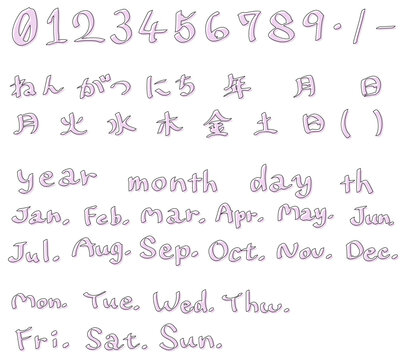 0123456789./-
ねん がつ にち 年 月 日
月 火 水 木 金 土 日 ( )
year month day th
Jan. Feb. Mar. Apr. May. Jun.
Jul. Aug. Sep. Oct. Nov. Dec.
Mon. Tue. Wed. Thu.
Fri. Sat. Sun.